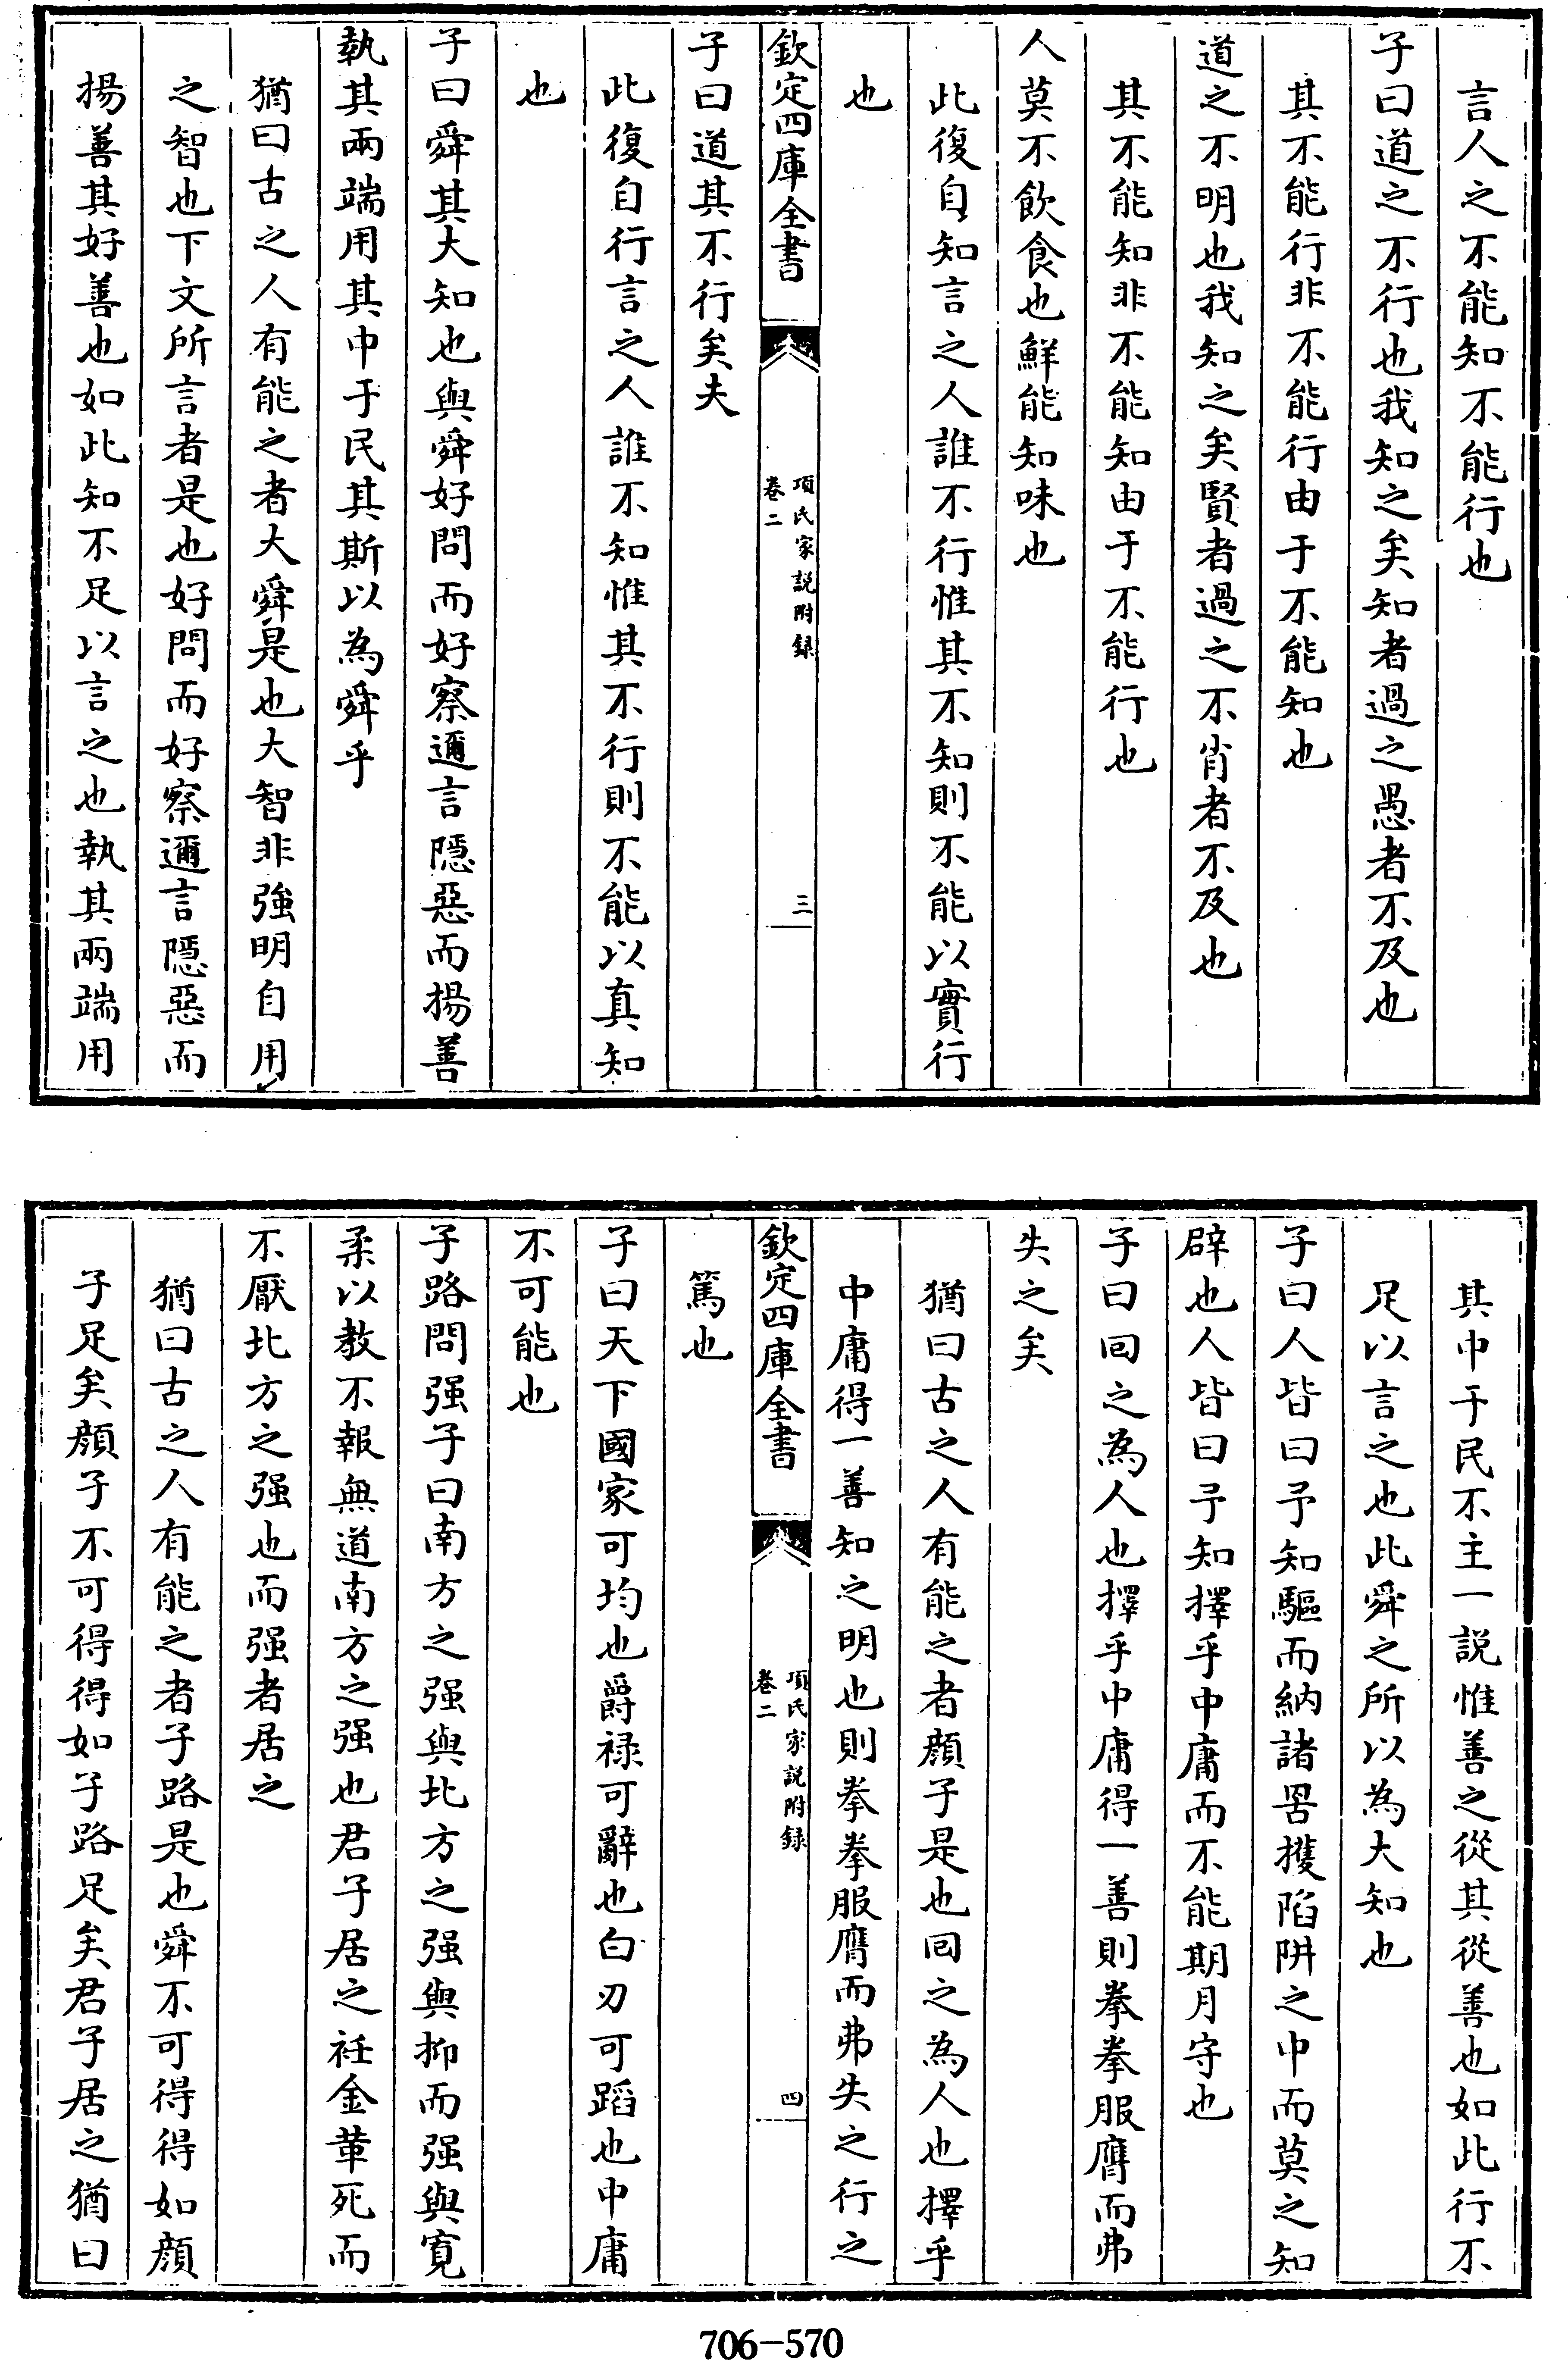 言人之不能知不能行也
子曰道之不行也我知之矣知者過之愚者不及也
其不能行非不能行由于不能知也
道之不明也我知之矣賢者過之不肖者不及也
其不能知非不能知由于不能行也
人莫不飲食也鮮能知味也
此復自知言之人誰不行惟其不知則不能以實行
也
欽定四庫全書
項氏家説附録
卷二
三
子曰道其不行矣夫
此復自行言之人誰不知惟其不行則不能以真知
也
子曰舜其大知也與舜好問而好察邇言隱惡而揚善
執其兩端用其中于民其斯以為舜乎
猶曰古之人有能之者大舜是也大智非強明自用
之智也下文所言者是也好問而好察邇言隱惡而
揚善其好善也如此知不足以言之也執其兩端用
其中于民不主一説惟善之從其從善也如此行不
足以言之也此舜之所以為大知也
子曰人皆曰予知驅而納諸罟擭陷阱之中而莫之知
辟也人皆曰予知擇乎中庸而不能期月守也
子曰回之為人也擇乎中庸得一善則拳拳服膺而弗
失之矣
猶曰古之人有能之者顔子是也回之為人也擇乎
中庸得一善知之明也則拳拳服膺而弗失之行之
欽定四庫全書
項氏家説附録
卷二
四
篤也
子曰天下國家可均也爵禄可辭也白刃可蹈也中庸
不可能也
子路問强子曰南方之强與北方之强與抑而强與寛
柔以教不報無道南方之强也君子居之衽金革死而
不厭北方之强也而强者居之
猶曰古之人有能之者子路是也舜不可得得如顔
子足矣顔子不可得得如子路足矣君子居之猶曰
706-570